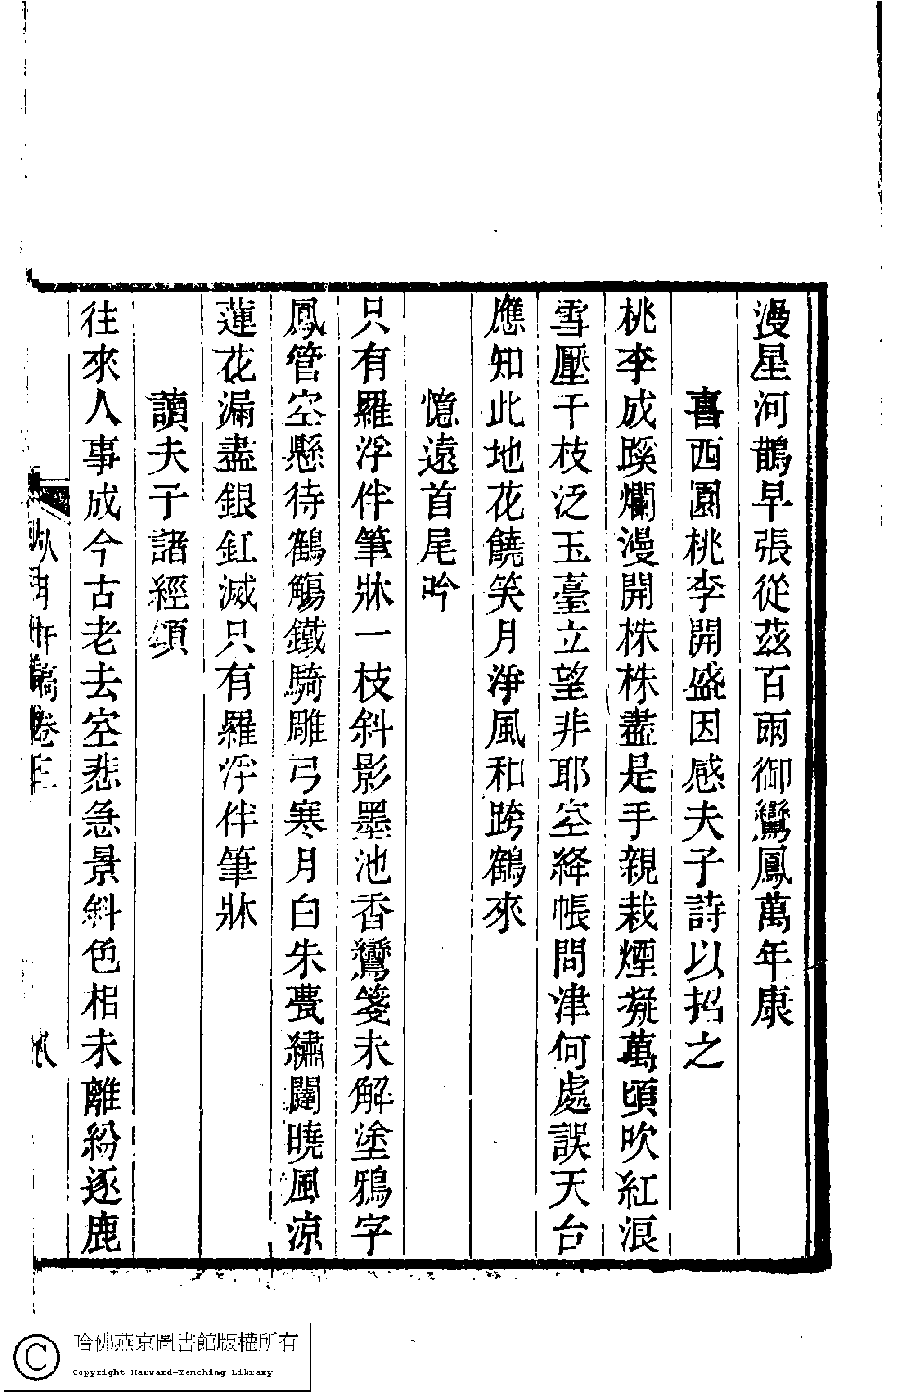 漫星河鵲早張從茲百兩御鸞鳳萬年康
喜西園桃李開盛因感夫子詩以招之
桃李成蹊爛漫開株株盡是手親栽煙凝萬頃吹紅浪
雪壓千枝泛玉臺立望非耶空絳帳問津何處誤天台
應知此地花饒笑月淨風和跨鶴來
憶遠首尾吟
只有羅浮伴筆牀一枝斜影墨池香鸞箋未解塗鴉字
鳳管空懸待鶴觴鐵騎雕弓寒月白朱甍繡闥曉風涼
蓮花漏盡銀釭滅只有羅浮伴筆牀
讀夫子諸經頌
往來人事成今古老去空悲急景斜色相未離紛逐鹿
稿卷三
八
哈佛燕京圖書館版權所有
Copyright Harvard-Yenching Library